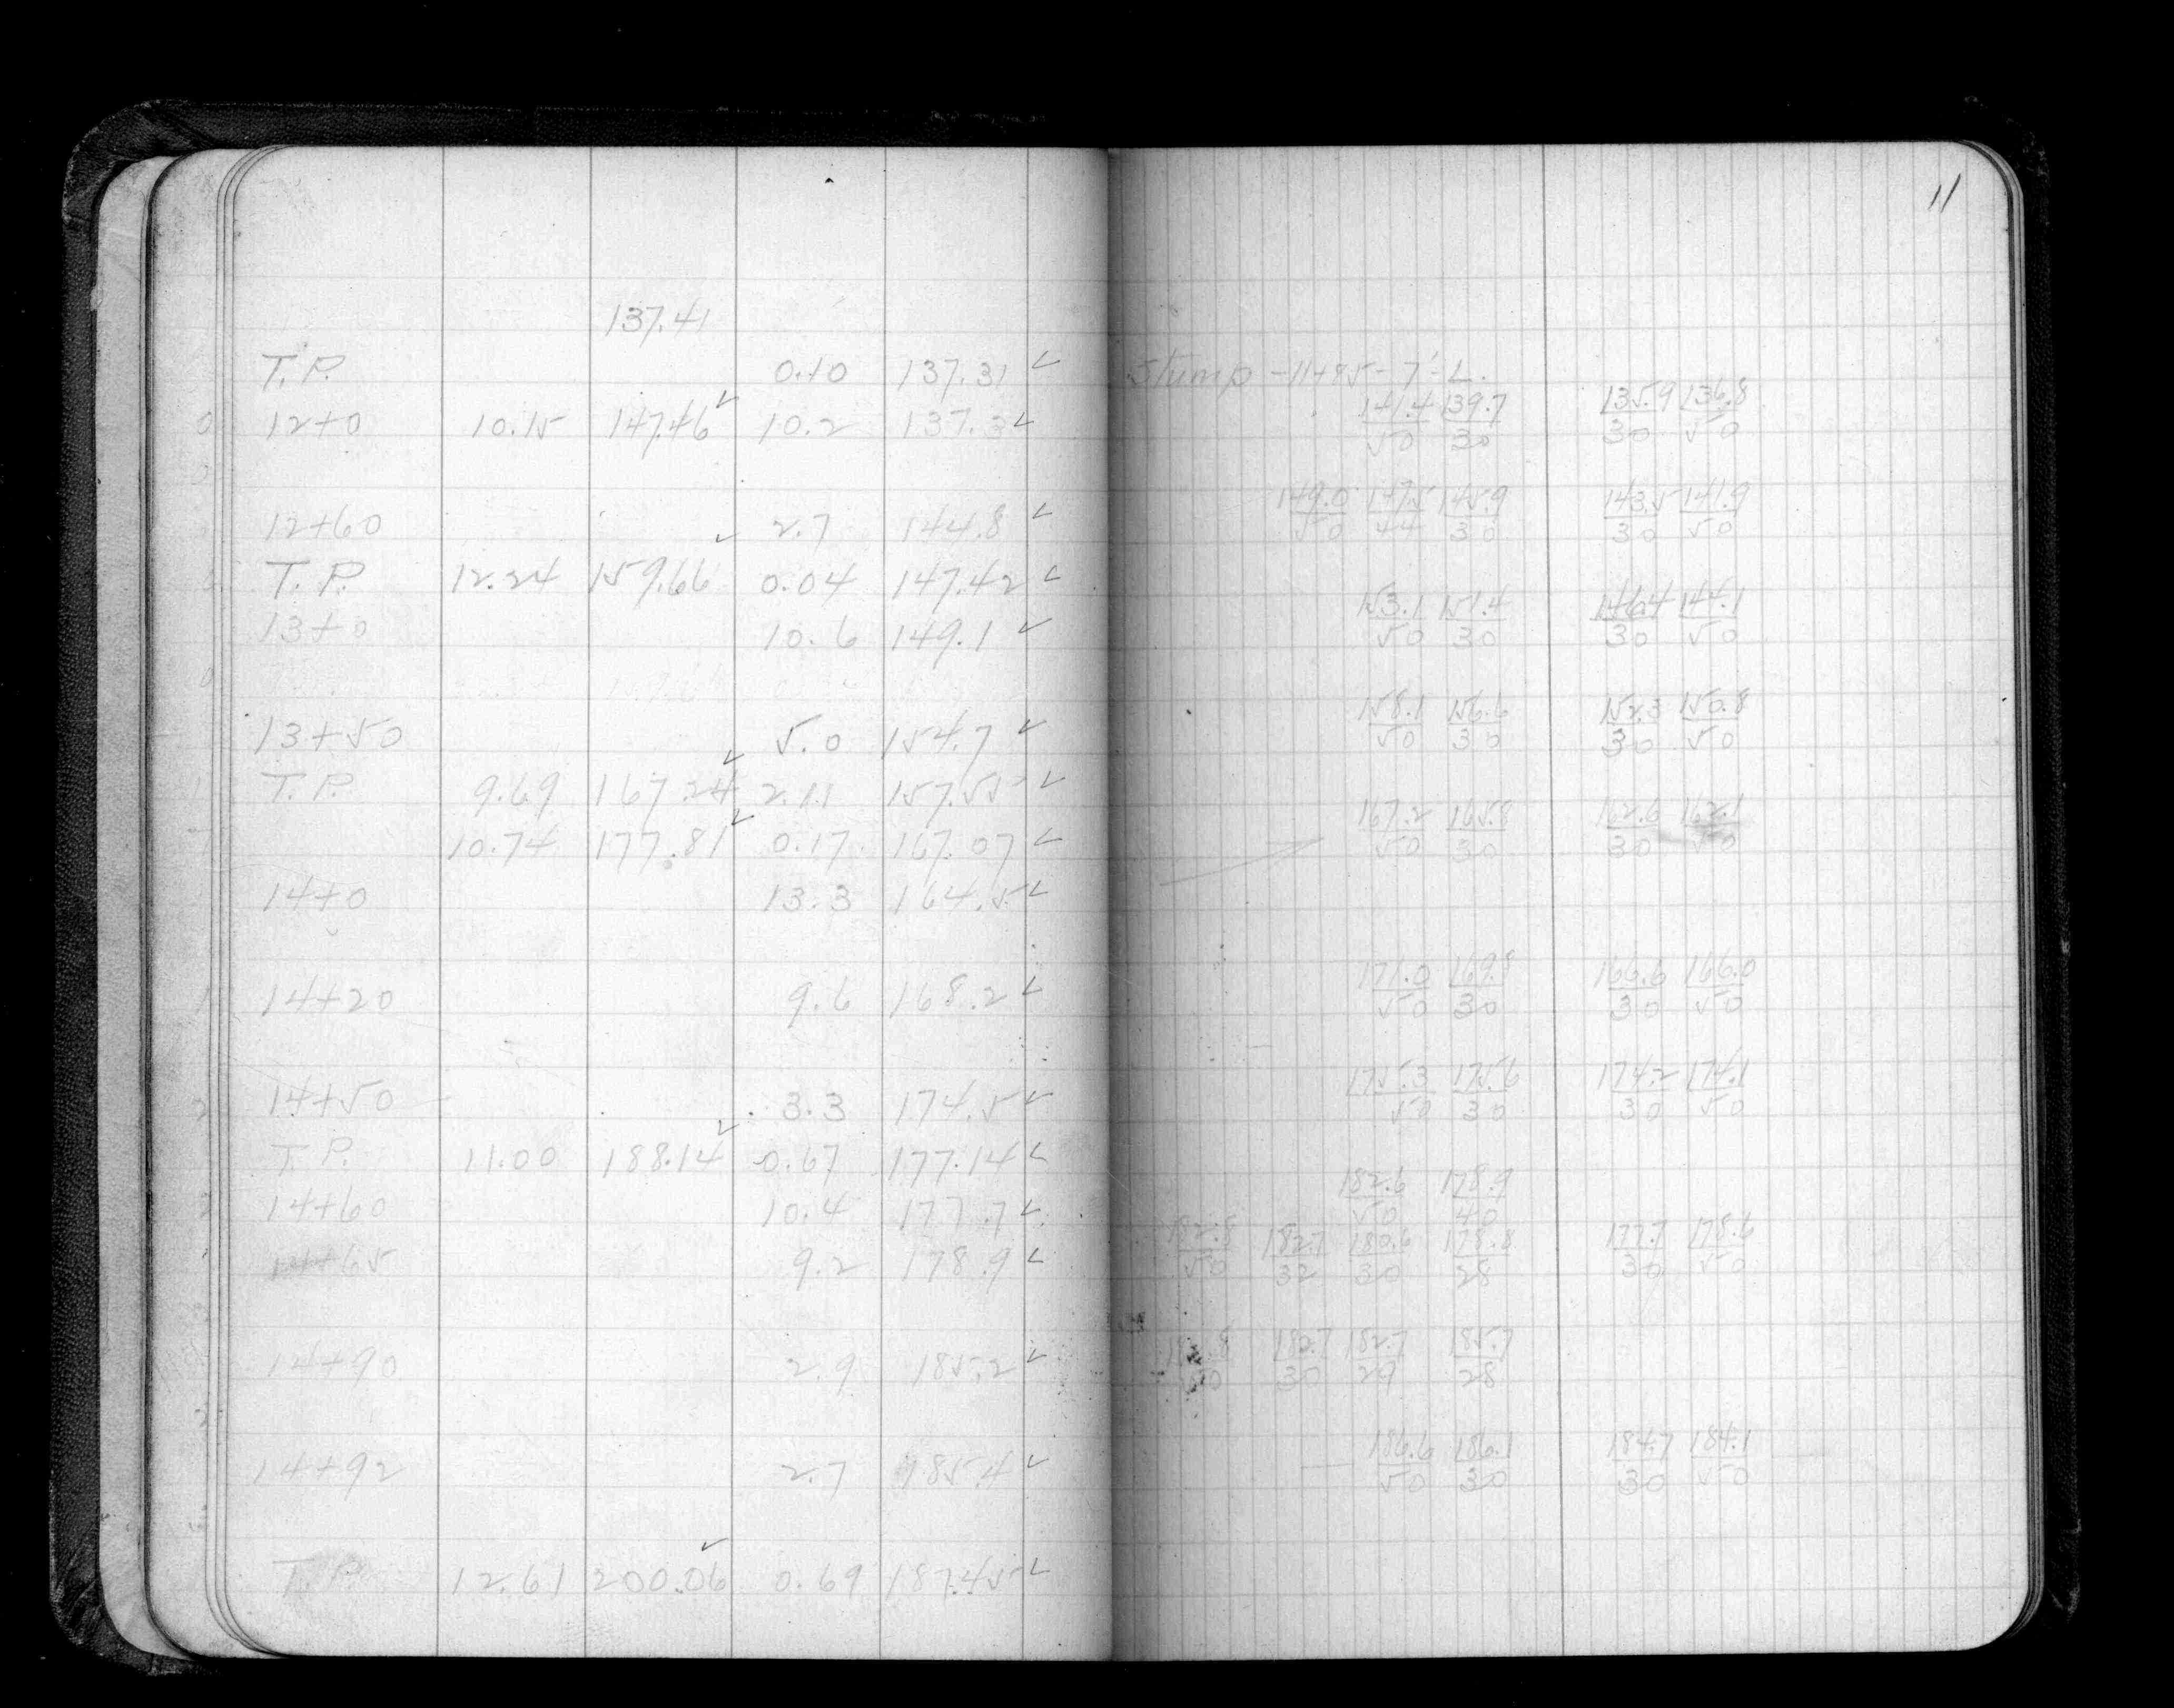 11
137.41
T.P. 0.10 137.31 ✓ Stump -11+85- 7'-L.
12+0 10.15 147.46 ✓ 10.2 137.3 ✓ 141.4/50 139.7/30 135.9/30 136.8/50
12+60 2.7 144.8 ✓ 149.0/50 147.5/44 145.9/30 143.5/30 141.9/50
T.P. 12.24 159.66 ✓ 0.04 147.42 ✓
13+0 10.6 149.1 ✓ 153.1/50 151.4/30 146.4/30 144.1/50
13+50 5.0 154.7 ✓ 158.1/50 156.6/30 152.3/30 150.8/50
T.P. 9.69 167.24 ✓ 2.11 157.55 ✓
10.74 177.81 ✓ 0.17 167.07 ✓ 167.2/50 165.8/30 162.6/30 162.1/50
14+0 13.3 164.5 ✓
14+20 9.6 168.2 ✓ 171.0/50 169.8/30 166.6/30 166.0/50
14+50 3.3 174.5 ✓ 175.3/50 175.6/30 174.2/30 174.1/50
T.P. 11.00 188.14 ✓ 0.67 177.14 ✓
14+60 10.4 177.7 ✓ 182.6/50 178.9/40
14+65 9.2 178.9 ✓ 182.8/50 182.7/32 180.6/30 178.8/28 177.7/30 178.6/50
14+90 2.9 185.2 ✓ 182.7/30 182.7/29 185.7/28
14+92 2.7 185.4 ✓ 186.6/50 186.1/30 184.7/30 184.1/50
T.P. 12.61 200.06 ✓ 0.69 187.45 ✓